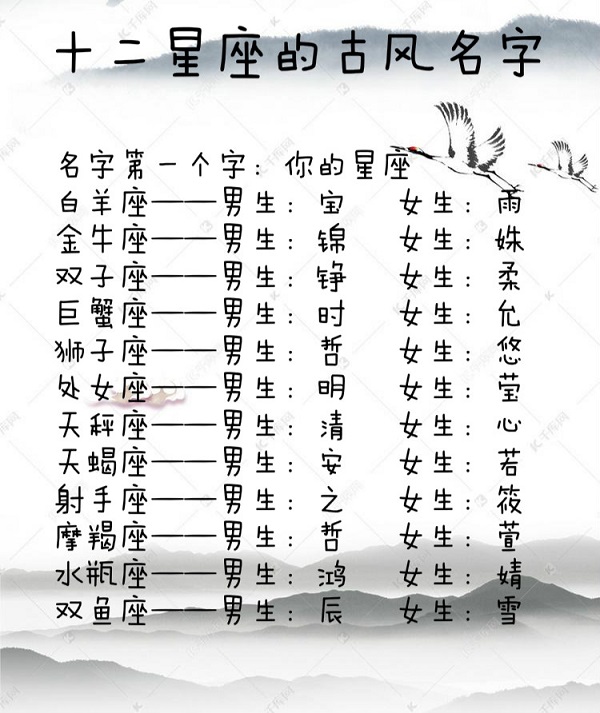 十二星座的古风名字
名字第一个字：你的星座
白羊座——男生：宝 女生：雨
金牛座——男生：锦 女生：姝
双子座——男生：铮 女生：柔
巨蟹座——男生：时 女生：允
狮子座——男生：哲 女生：悠
处女座——男生：明 女生：莹
天秤座——男生：清 女生：心
天蝎座——男生：安 女生：若
射手座——男生：之 女生：筱
摩羯座——男生：哲 女生：萱
水瓶座——男生：鸿 女生：婧
双鱼座——男生：辰 女生：雪